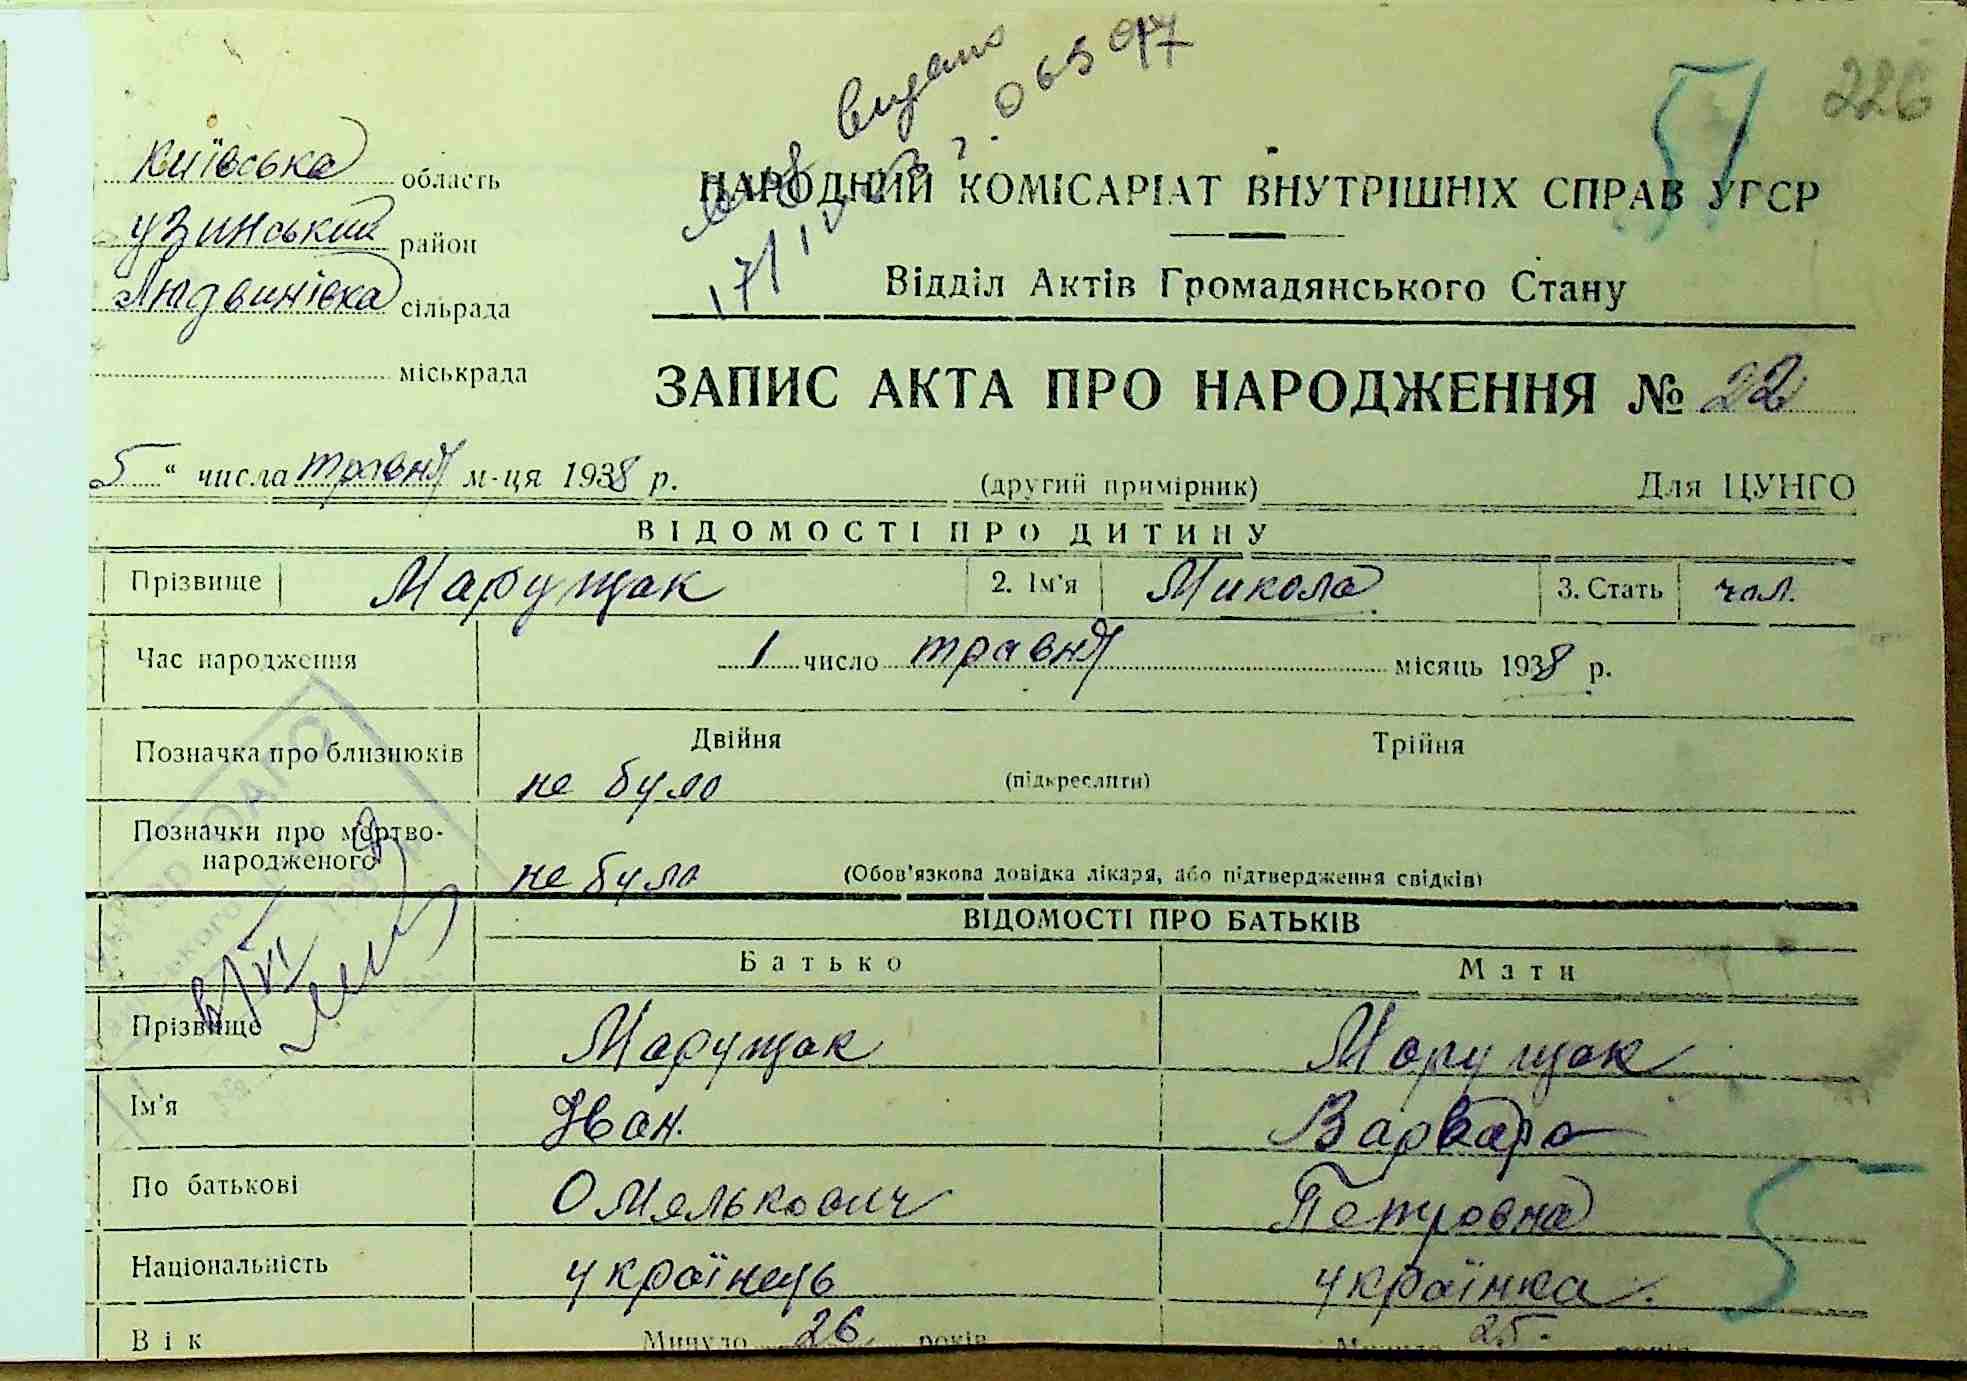 226
51
видано
065 047
Київська область
Узинський район
Людвинівка сільрада
міськрада
НАРОДНИЙ КОМІСАРІАТ ВНУТРІШНІХ СПРАВ УРСР
Відділ Актів Громадянського Стану
ЗАПИС АКТА ПРО НАРОДЖЕННЯ № 22
5 " числа травня м-ця 1938 р. (другий примірник) Для ЦУНГО
ВІДОМОСТІ ПРО ДИТИНУ
Прізвище Марущак 2. Ім'я Микола 3. Стать чол.
Час народження 1 число травня місяць 1938 р.
Позначка про близнюків Двійня Трійня
не було (підкреслити)
Позначки про мертво-
народженого не було (Обов'язкова довідка лікаря, або підтвердження свідків)
ВІДОМОСТІ ПРО БАТЬКІВ
Батько Мати
Прізвище Марущак Марущак
Ім'я Іван. Варвара
По батькові Омялькович Петровна
Національність українець українка.
Вік Минуло 26 років Минуло 25. років
5